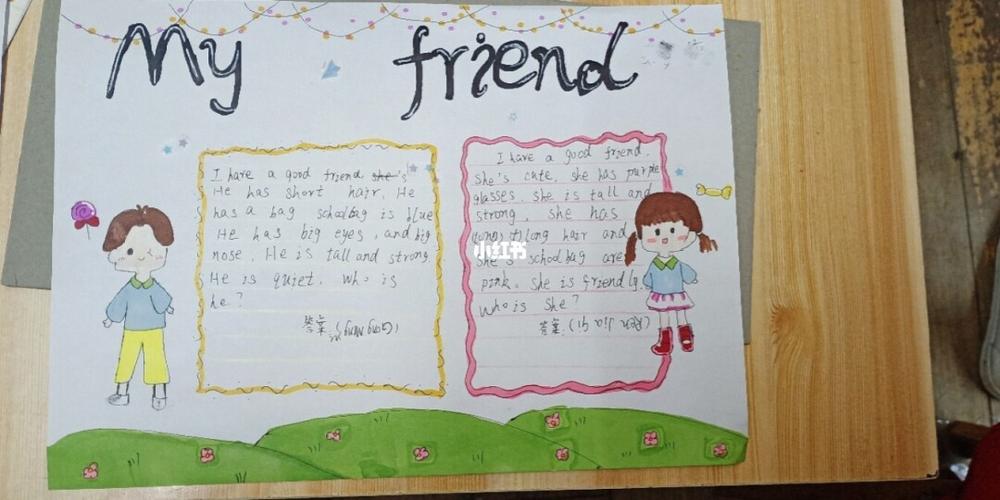 My friend
I have a good friend she's
He has short hair, He
has a bag schoolbag is blue
He has big eyes, and big
nose, He is tall and strong.
He is quiet. who is
he?
答案
I have a good friend.
She's cute, she has purple
glasses. she is tall and
strong, she has
long hair and
she's schoolbag are
pink. she is friendly.
who is she?
答案: (Ren Jia qi)
小红书